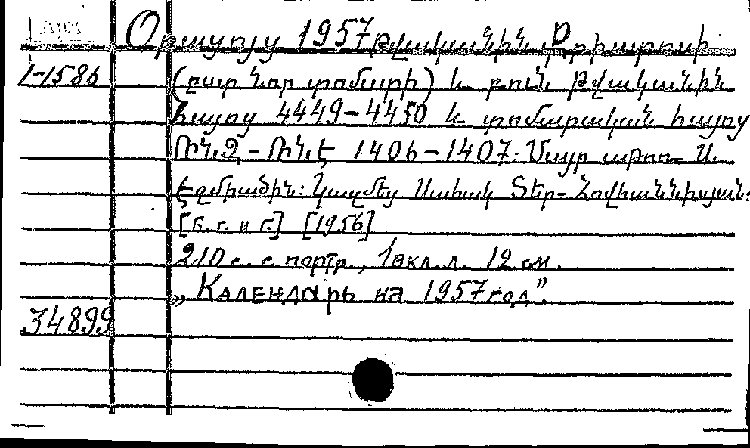 Օրացոյց 1957 թվականին Քրիստոսի
1-1586 (ըստ նոր տոմարի) և բուն թվականին
հայոց 4449-4450 և տոմարական հայոց
ՌՆԶ - ՌՆԷ 1406-1407: Մայր աթոռ Ս.
Էջմիածին: Կազմեց Սահակ Տեր-Հովհաննիսյան:
[б. г. и г.] [1956]
210 с. с портр., 1 вкл. л. 12 см.
„Календарь на 1957 год".
34899